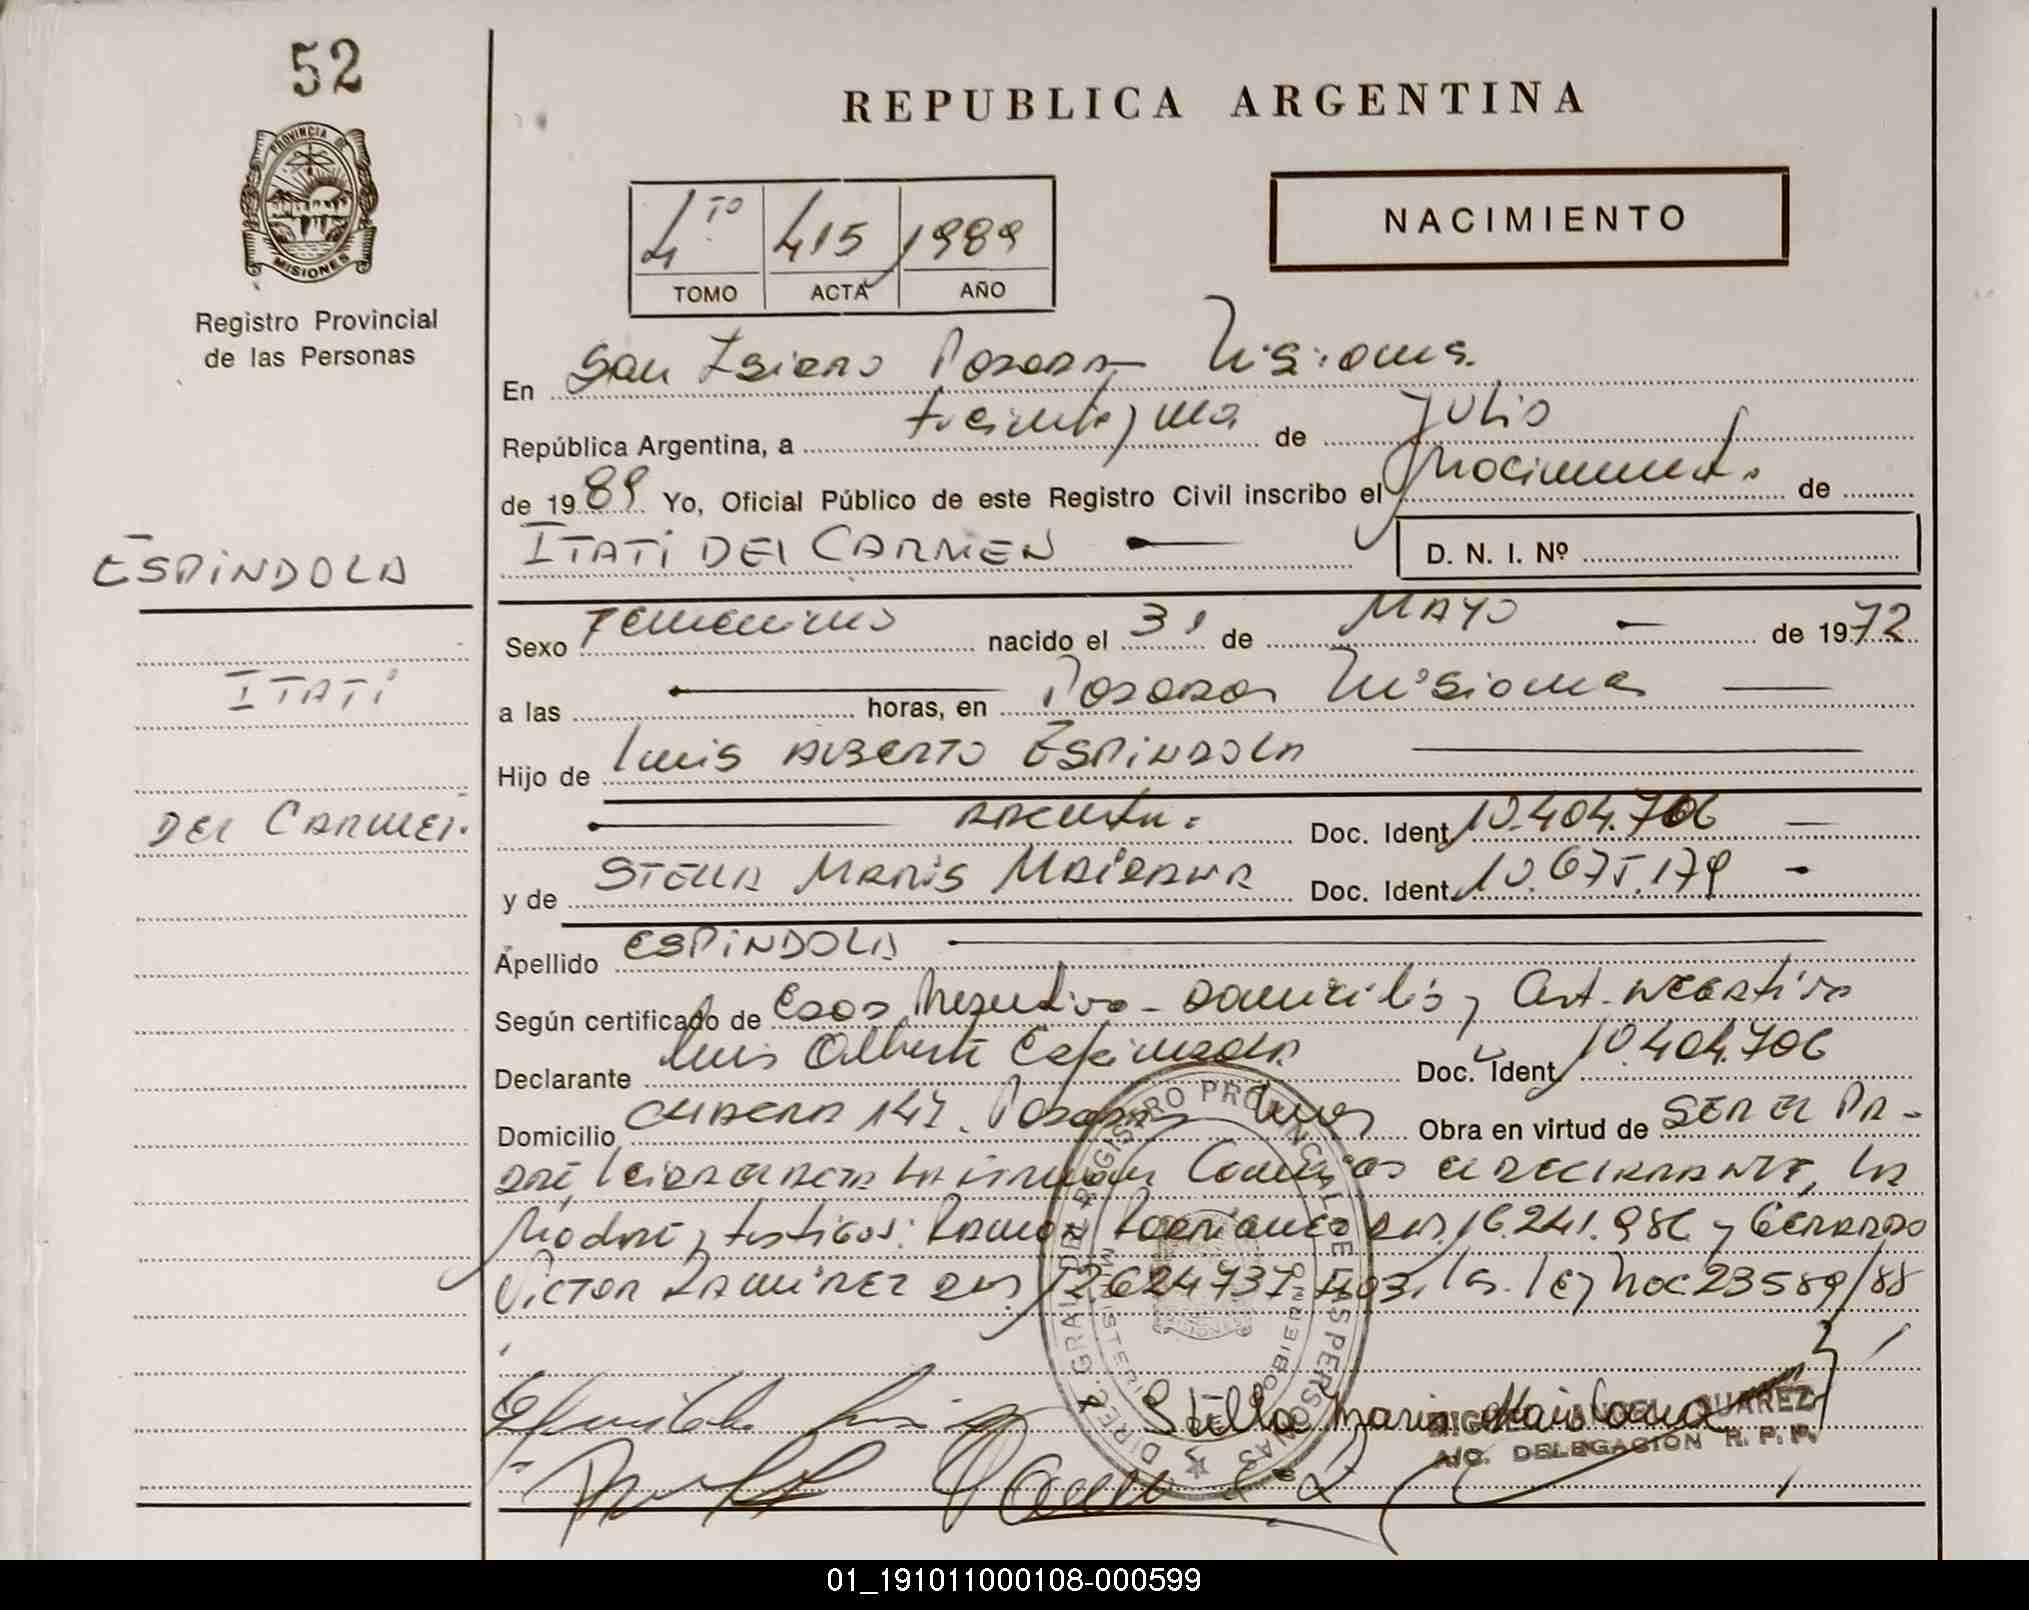 52
REPUBLICA ARGENTINA
PROVINCIA DE
MISIONES
Registro Provincial
de las Personas
4TO 415 1989
TOMO ACTA AÑO
NACIMIENTO
En San Isidro Posadas Misiones.
República Argentina, a treinta y uno de Julio
de 1989 Yo, Oficial Público de este Registro Civil inscribo el nacimiento de
ITATÍ DEL CARMEN D. N. I. Nº
ESPINDOLA
ITATÍ
DEL CARMEN.
Sexo Femenino nacido el 31 de MAYO de 1972
a las horas, en Posadas Misiones
Hijo de Luis ALBERTO ESPINDOLA
Doc. Ident. 10.404.706
y de STELLA MARIS MAIDANA Doc. Ident. 10.675.179
Apellido ESPINDOLA
Según certificado de Edad Negativo - Domicilio y Cert. NEGATIVO
Declarante Luis Alberto Espindola Doc. Ident. 10.404.706
Domicilio 147. Posadas Mnes Obra en virtud de SER EL PA-
DRE, Leida el acta la firman Conmigo el DECLARANTE, LA
Madre y testigos: Ramon DNI 16.241.986 y GERARDO
VICTOR RAMIREZ DNI 12624737 Ley Nac 23589/88
DIREC. GRAL. DEL REGISTRO PROVINCIAL DE LAS PERSONAS
MINISTERIO GOBIERNO
MISIONES
Stella Maris Maidana
MIGUEL ANGEL SUAREZ
A/C. DELEGACION R. P. P.
01_191011000108-000599